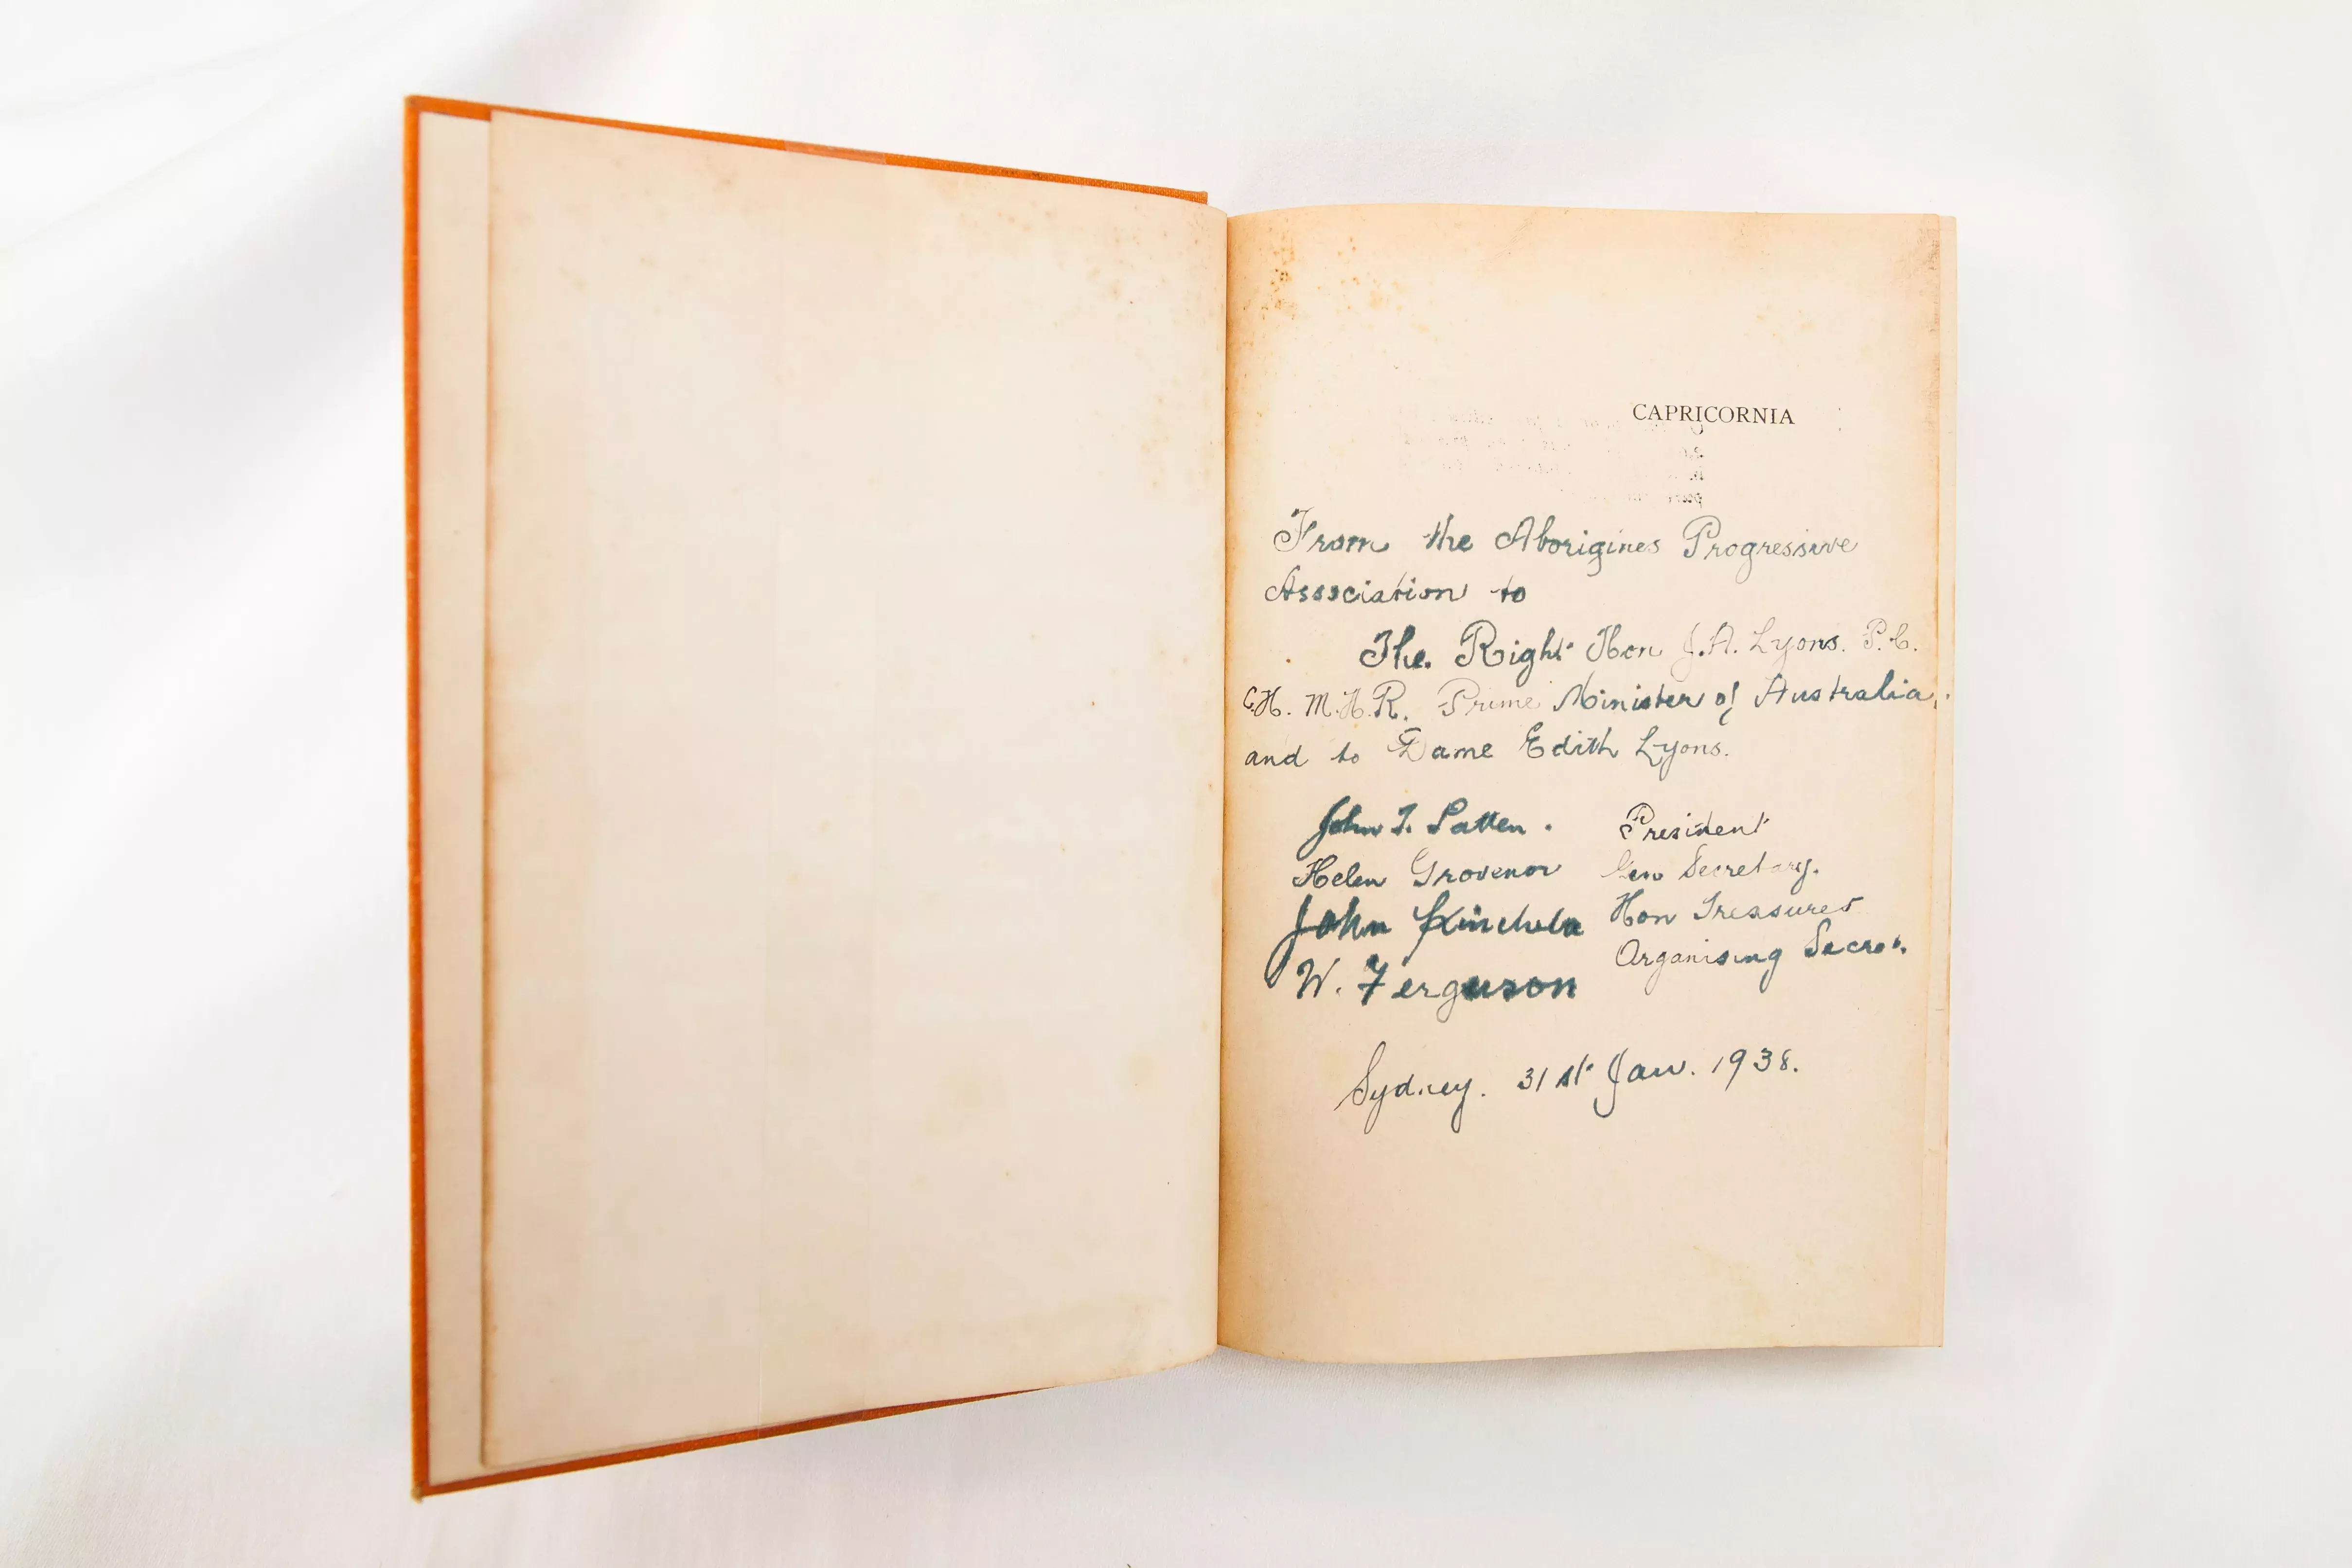 CAPRICORNIA
From the Aborigines Progressive
Association to
The. Right Hon J.A. Lyons. P.C.
C.H. M.H.R. Prime Minister of Australia.
and to Dame Edith Lyons.
John T. Patten. President
Helen Grovenor Gen Secretary.
John Kinchela Hon Treasurer
W. Ferguson Organising Secre
Sydney. 31st Jan. 1938.